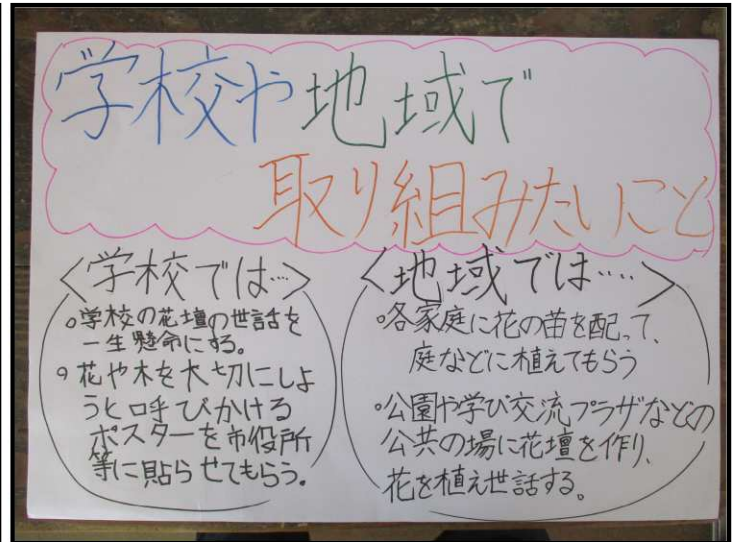 学校や地域で
取り組みたいこと
〈学校では…〉
。学校の花壇の世話を
一生懸命にする。
。花や木を大切にしよ
うと呼びかける
ポスターを市役所
等に貼らせてもらう。
〈地域では‥‥〉
。各家庭に花の苗を配って、
庭などに植えてもらう
。公園や学び交流プラザなどの
公共の場に花壇を作り、
花を植え世話する。